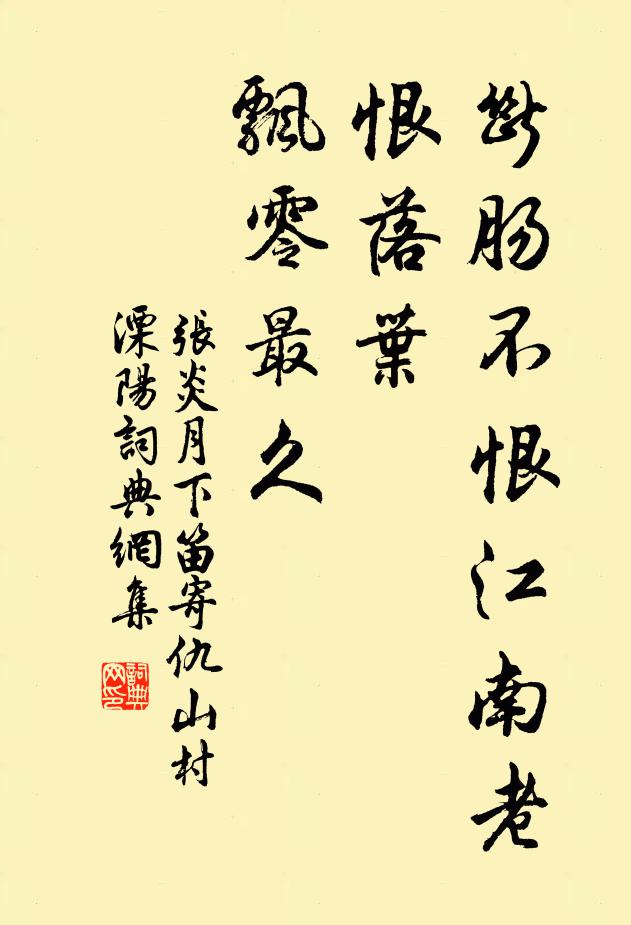 斷肠不恨江南老
恨落葉
飄零最久
張炎月下笛寄仇山村
溧陽詞典網集
詞典网印